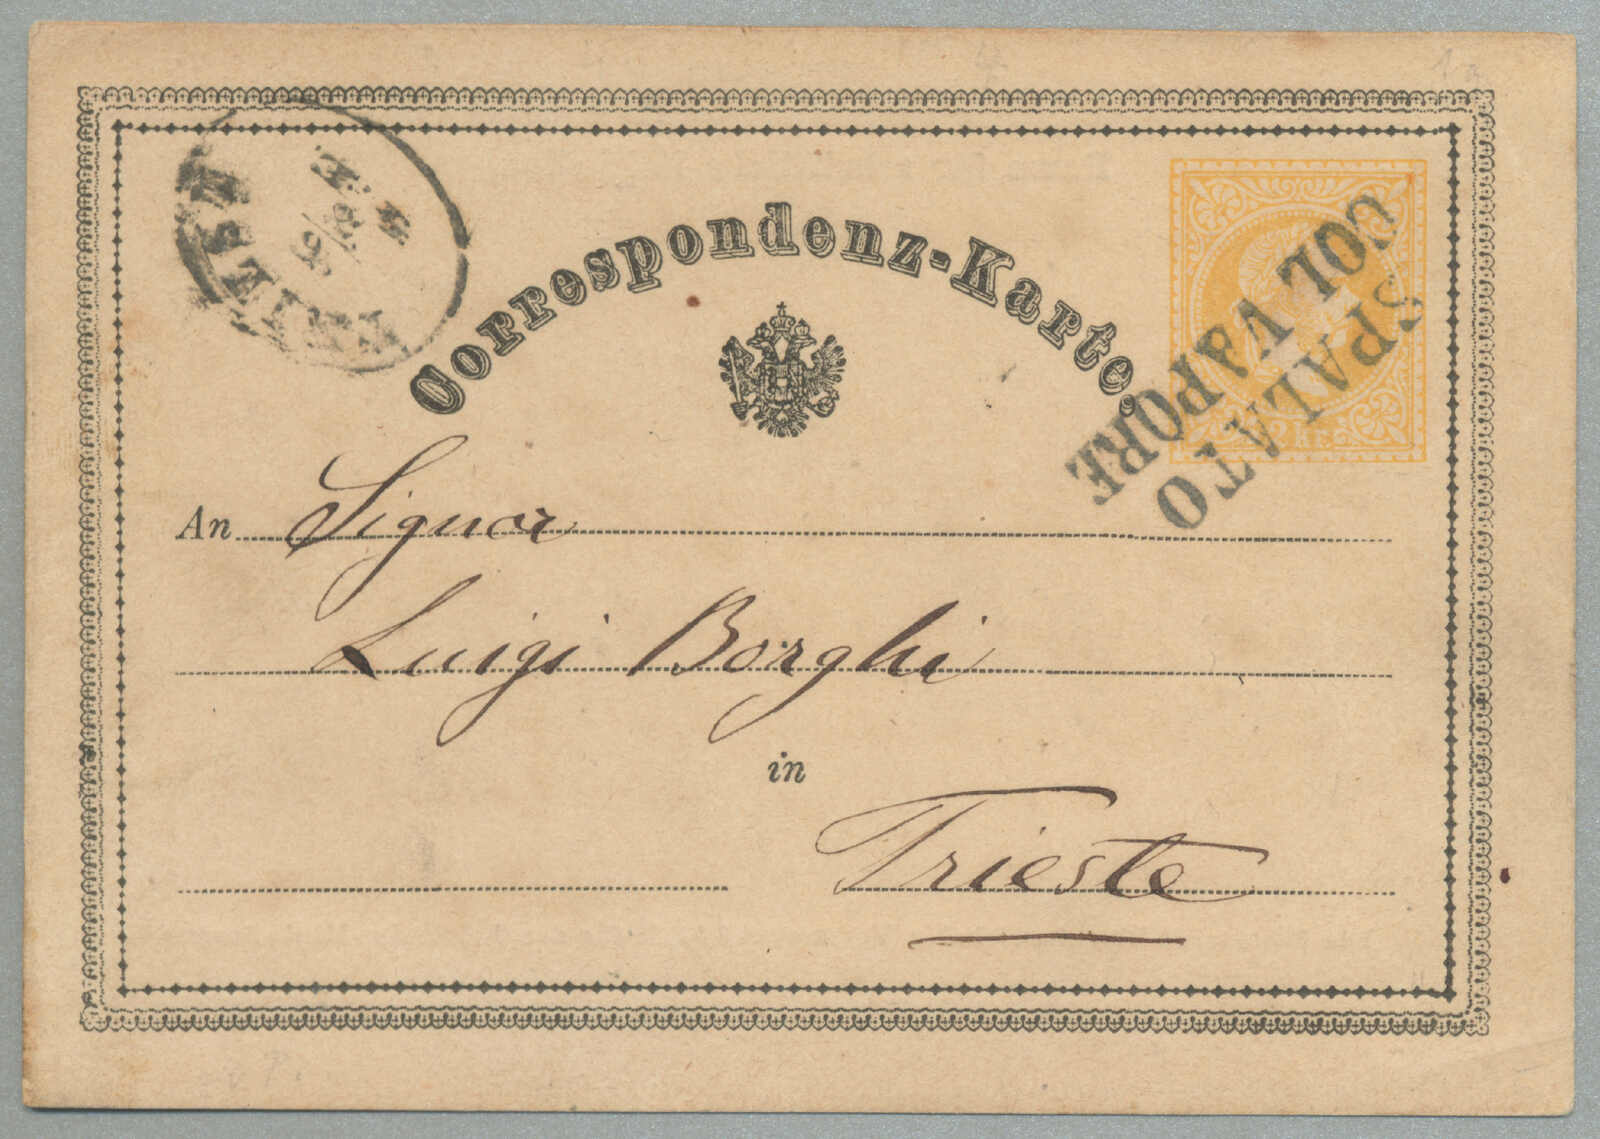 Correspondenz-Karte.
SPALATO
COL VAPORE
2 KR.
An Signor
Luigi Borghi
in
Trieste